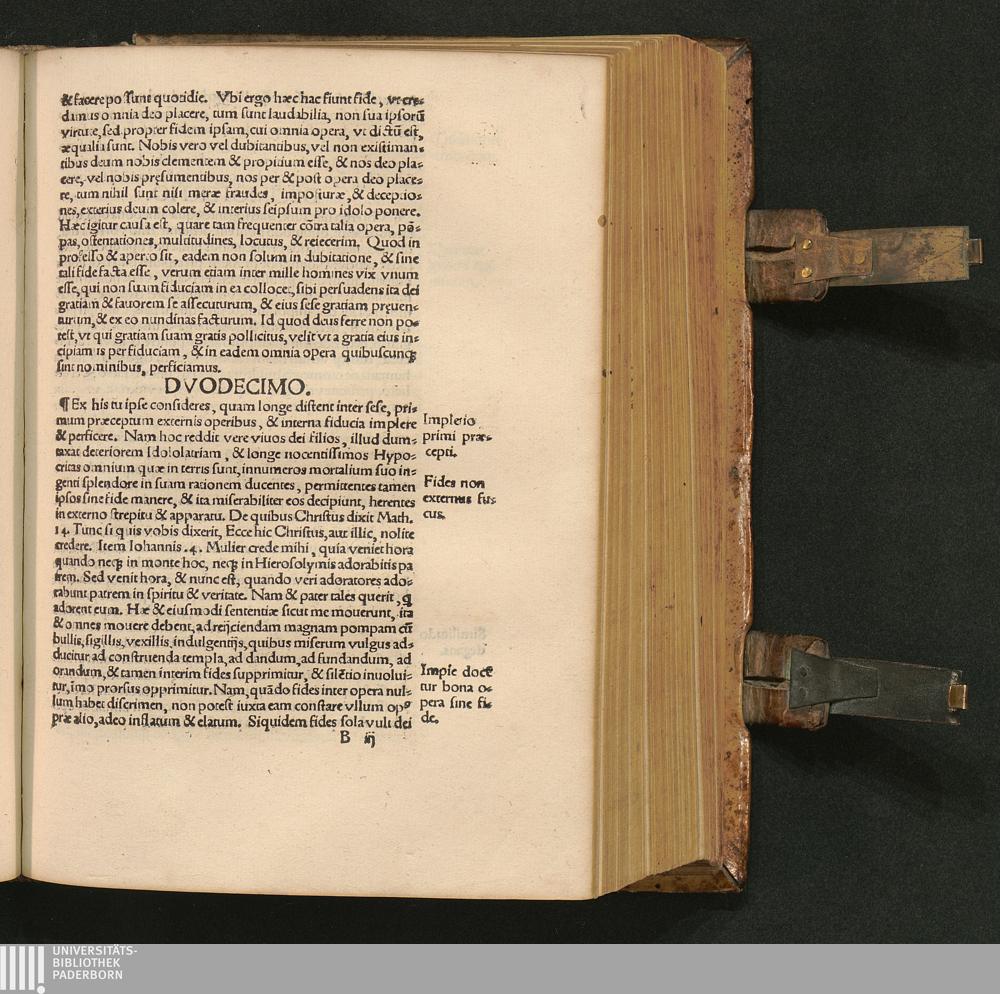 & facere possunt quotidie. Vbi ergo hæc hac fiunt fide, vt cre⸗
damus omnia deo placere, tum sunt laudabilia, non sua ipsorū
virtute, sed propter fidem ipsam, cui omnia opera, vt dictū est,
æqualia sunt. Nobis vero vel dubitantibus, vel non existiman⸗
tibus deum nobis clementem & propitium esse, & nos deo pla⸗
cere, vel nobis pręsumentibus, nos per & post opera deo place⸗
re, tum nihil sunt nisi meræ fraudes, imposturæ, & deceptio⸗
nes, exterius deum colere, & interius seipsum pro idolo ponere.
Hæc igitur causa est, quare tam frequenter cōtra talia opera, pō⸗
pas, ostentationes, multitudines, locutus, & reiecerim. Quod in
professo & aperto sit, eadem non solum in dubitatione, & sine
tali fide facta esse, verum etiam inter mille homines vix vnum
esse, qui non suam fiduciam in ea collocet, sibi persuadens ita dei
gratiam & fauorem se assecuturum, & eius sese gratiam pręuen⸗
turum, & ex eo nundinas facturum. Id quod deus ferre non po⸗
test, vt qui gratiam suam gratis pollicitus, velit vt a gratia eius in⸗
cipiamus per fiduciam, & in eadem omnia opera quibuscunqꝫ
sint nominibus, perficiamus.
DVODECIMO.
¶ Ex his tu ipse consideres, quam longe distent inter sese, pri⸗
mum præceptum externis operibus, & interna fiducia implere
& perficere. Nam hoc reddit vere viuos dei filios, illud dum⸗
taxat deteriorem Idololatriam, & longe nocentissimos Hypo⸗
critas omnium quæ in terris sunt, innumeros mortalium suo in⸗
genti splendore in suam rationem ducentes, permittentes tamen
ipsos sine fide manere, & ita miserabiliter eos decipiunt, herentes
in externo strepitu & apparatu. De quibus Christus dixit Math.
14. Tunc si quis vobis dixerit, Ecce hic Christus, aut illic, nolite
credere. Item Iohannis .4. Mulier crede mihi, quia veniet hora
quando neqꝫ in monte hoc, neqꝫ in Hierosolymis adorabitis pa
trem. Sed venit hora, & nunc est, quando veri adoratores ado⸗
rabunt patrem in spiritu & veritate. Nam & pater tales querit, ꝗ
adorent eum. Hæ & eiusmodi sententiæ sicut me mouerunt, ita
& omnes mouere debent, ad reijciendam magnam pompam cū
bullis, sigillis, vexillis, indulgentijs, quibus miserum vulgus ad⸗
ducitur ad construenda templa, ad dandum, ad fundandum, ad
orandum, & tamen interim fides supprimitur, & silētio inuolui⸗
tur, imo prorsus opprimitur. Nam, quādo fides inter opera nul⸗
lum habet discrimen, non potest iuxta eam constare vllum opꝰ
præ alio, adeo inflatum & elatum. Siquidem fides sola vult dei
B iij
Impletio
primi præ⸗
cepti.
Fides non
externus fu⸗
cus.
Impie docē
tur bona o⸗
pera sine fi⸗
de.
UNIVERSITÄTS-
BIBLIOTHEK
PADERBORN